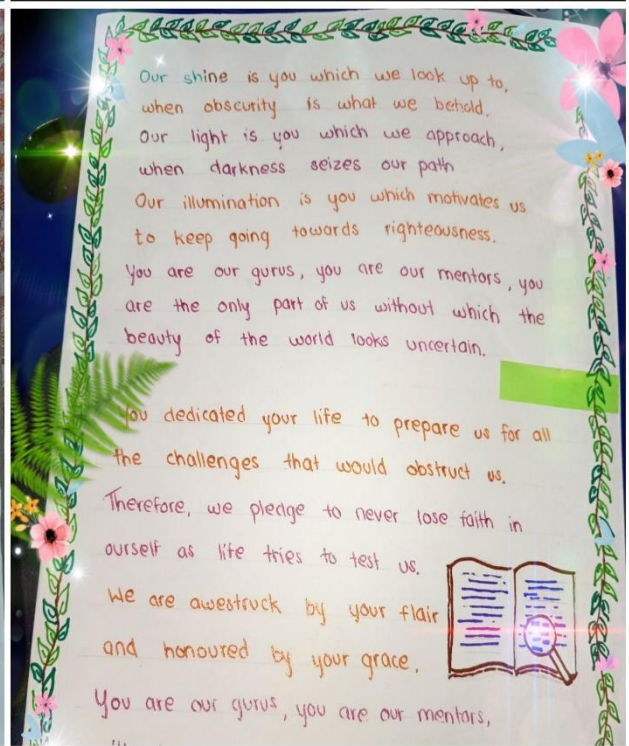 Our shine is you which we look up to,
when obscurity is what we behold.
Our light is you which we approach,
when darkness seizes our path
Our illumination is you which motivates us
to keep going towards righteousness.
You are our gurus, you are our mentors, you
are the only part of us without which the
beauty of the world looks uncertain.
You dedicated your life to prepare us for all
the challenges that would obstruct us.
Therefore, we pledge to never lose faith in
ourself as life tries to test us.
We are awestruck by your flair
and honoured by your grace.
You are our gurus, you are our mentors,